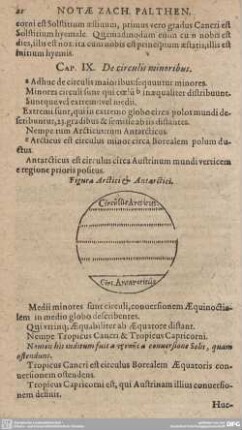 22 NOTÆ ZACH. PALTHEN.
corni est Solstitium æstiuum, primus vero gradus Cancri est
Solstitium hyemale. Quemadmodum enim cum nobis est
dies, illis est nox ita cum nobis est principium æstatis, illis est
initium hyemis.
CAP. IX. De circulis minoribus.
Adhuc de circulis maioribus sequuntur minores.
Minores circuli sunt qui cœlũ inæqualiter distribuunt.
Suntque vel extremi vel medii.
Extremi sunt, qui in extremo globo circa polos mundi de-
scribuntur, 23. gradibus & semisse ab iis distantes.
Nempe tum Arcticus tum Antarcticus.
Arcticus est circulus minor circa Borealem polum du-
ctus.
Antarcticus est circulus circa Austrinum mundi verticem
e regione prioris positus.
Figura Arctici & Antarctici.
Circulus Arcticus.
Circ. Antarcticus
Medii minores sunt circuli, conuersionem Æquinoctia-
lem in medio globo describentes.
Qui vtrinq; Æquabiliter ab Æquatore distant.
Nempe Tropicus Cancri & Tropicus Capricorni.
Nomen his inditum fuit a conuersione Solis, quam
ostendunt.
Tropicus Cancri est circulus Borealem Æquatoris con-
uersionem ostendens.
Tropicus Capricorni est, qui Austrinam illius conuersio-
nem definit.
Huc-